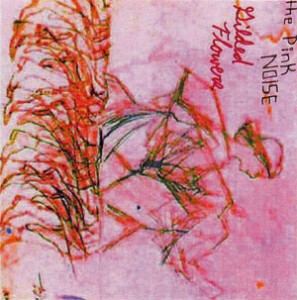 the Pink
NOISE
Gilded
Flowers